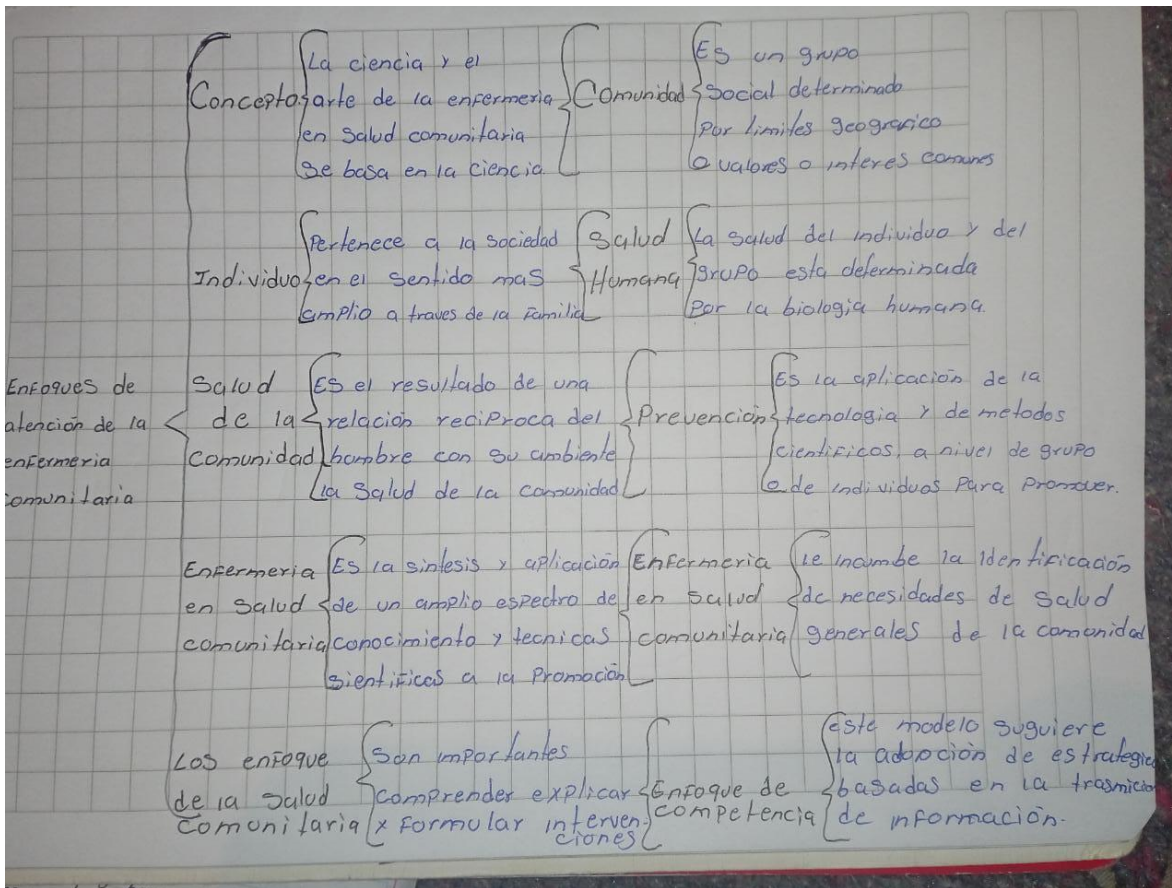 Enfoques de
atención de la
enfermeria
comunitaria
Concepto
La ciencia y el
arte de la enfermeria
en salud comunitaria
se basa en la ciencia
Comunidad
Es un grupo
social determinado
por limites geografico
o valores o interes comunes
Individuo
Pertenece a la sociedad
en el sentido mas
amplio a traves de la familia
Salud
Humana
La salud del individuo y del
grupo esta determinada
por la biologia humana.
Salud
de la
comunidad
Es el resultado de una
relación reciproca del
hombre con su ambiente
la salud de la comunidad
Prevención
Es la aplicación de la
tecnologia y de metodos
cientificos, a nivel de grupo
o de individuos para promover.
Enfermeria
en salud
comunitaria
Es la sintesis y aplicación
de un amplio espectro de
conocimiento y tecnicas
sientificas a la promoción
Enfermeria
en salud
comunitaria
le incumbe la identificación
de necesidades de salud
generales de la comunidad
Los enfoque
de la salud
comunitaria
Son importantes
comprender explicar
y formular interven-
ciones
Enfoque de
competencia
Este modelo suguiere
la adopción de estrategia
basadas en la trasmicion
de nformación.